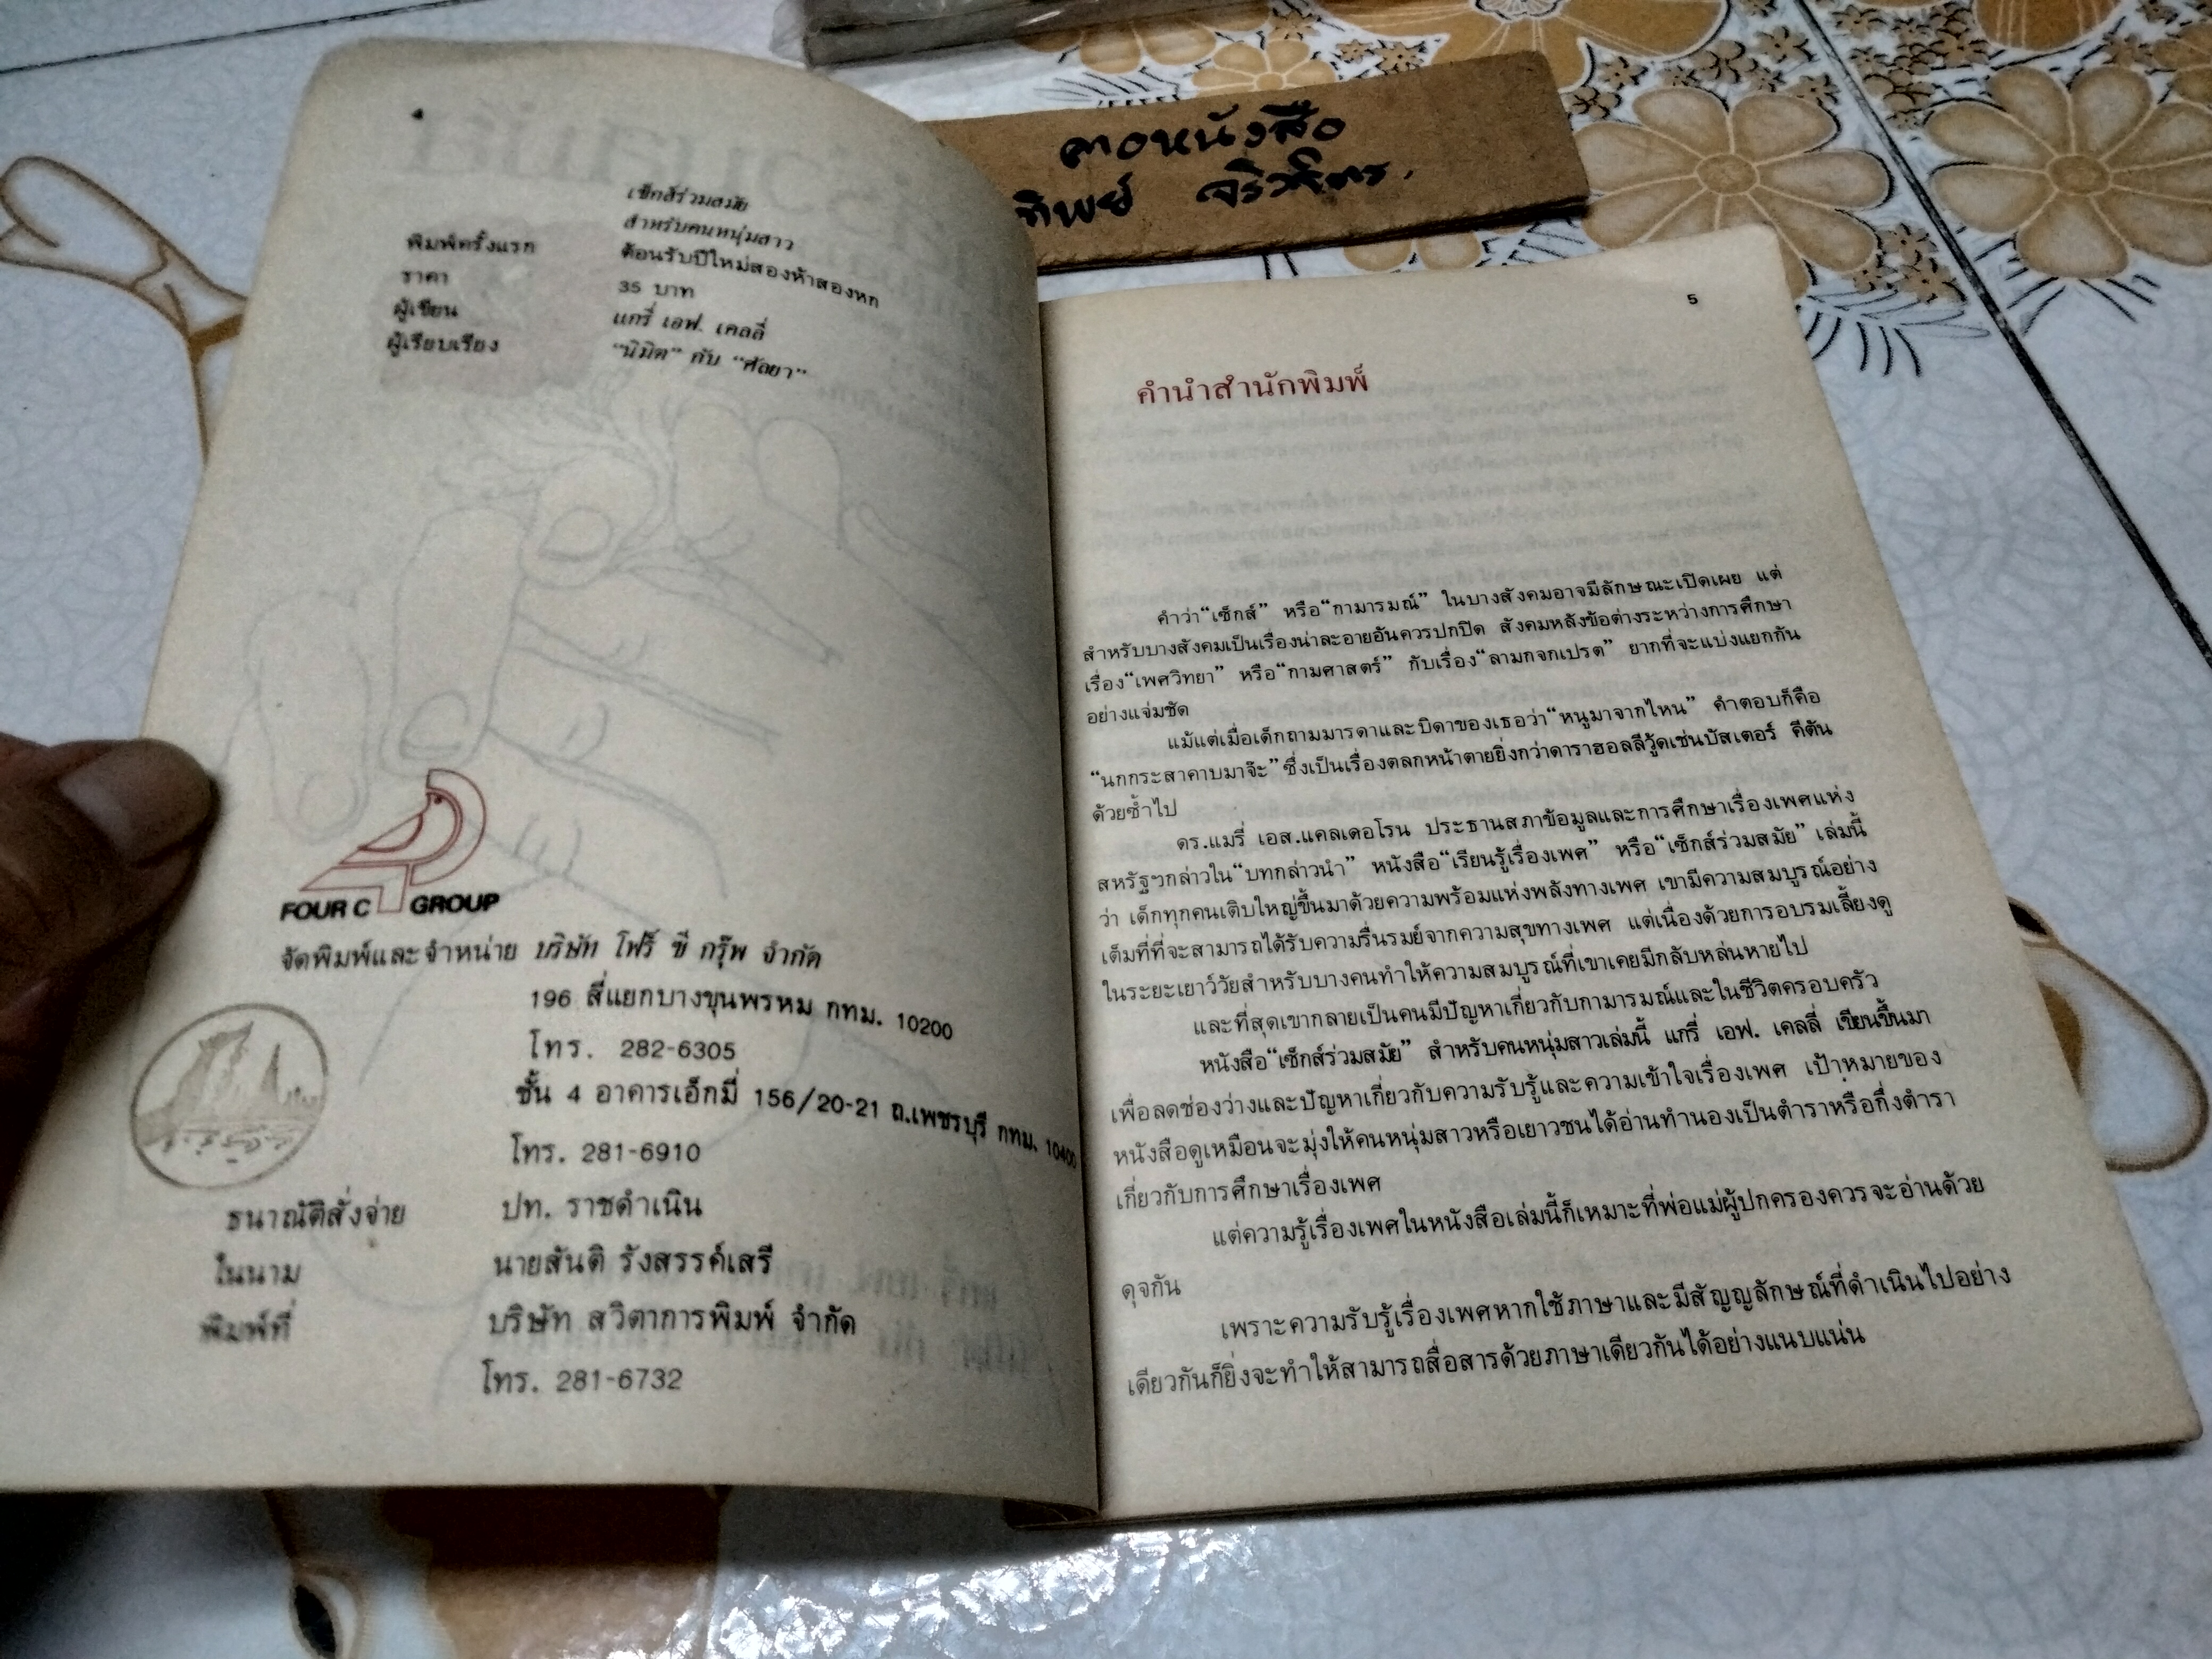 คาอหนังสือ
ทิพย์
4
เซ็กส์ร่วมสมัย
สำหรับคนหนุ่มสาว
พิมพ์ครั้งแรก ต้อนรับปีใหม่สองห้าสองหก
ราคา 35 บาท
ผู้เขียน แกรี่ เอฟ. เคลลี่
ผู้เรียบเรียง "นิมิต" กับ "ศัลยา"
FOUR C GROUP
จัดพิมพ์และจำหน่าย บริษัท โฟร์ ซี กรุ๊พ จำกัด
196 สี่แยกบางขุนพรหม กทม. 10200
โทร. 282-6305
ชั้น 4 อาคารเอ็กมี่ 156/20-21 ถ.เพชรบุรี กทม. 10400
โทร. 281-6910
ธนาณัติสั่งจ่าย ปท. ราชดำเนิน
ในนาม นายสันติ รังสรรค์เสรี
พิมพ์ที่ บริษัท สวิตาการพิมพ์ จำกัด
โทร. 281-6732
5
คำนำสำนักพิมพ์
คำว่า"เซ็กส์" หรือ"กามารมณ์" ในบางสังคมอาจมีลักษณะเปิดเผย แต่
สำหรับบางสังคมเป็นเรื่องน่าละอายอันควรปกปิด สังคมหลังข้อต่างระหว่างการศึกษา
เรื่อง"เพศวิทยา" หรือ"กามศาสตร์" กับเรื่อง"ลามกจกเปรต" ยากที่จะแบ่งแยกกัน
อย่างแจ่มชัด
แม้แต่เมื่อเด็กถามมารดาและบิดาของเธอว่า"หนูมาจากไหน" คำตอบก็คือ
"นกกระสาคาบมาจ๊ะ"ซึ่งเป็นเรื่องตลกหน้าตายยิ่งกว่าดาราฮอลลีวู้ดเช่นบัสเตอร์ คีตัน
ด้วยซ้ำไป
ดร.แมรี่ เอส.แคลเดอโรน ประธานสภาข้อมูลและการศึกษาเรื่องเพศแห่ง
สหรัฐฯกล่าวใน"บทกล่าวนำ" หนังสือ"เรียนรู้เรื่องเพศ" หรือ"เซ็กส์ร่วมสมัย" เล่มนี้
ว่า เด็กทุกคนเติบใหญ่ขึ้นมาด้วยความพร้อมแห่งพลังทางเพศ เขามีความสมบูรณ์อย่าง
เต็มที่ที่จะสามารถได้รับความรื่นรมย์จากความสุขทางเพศ แต่เนื่องด้วยการอบรมเลี้ยงดู
ในระยะเยาว์วัยสำหรับบางคนทำให้ความสมบูรณ์ที่เขาเคยมีกลับหล่นหายไป
และที่สุดเขากลายเป็นคนมีปัญหาเกี่ยวกับกามารมณ์และในชีวิตครอบครัว
หนังสือ"เซ็กส์ร่วมสมัย" สำหรับคนหนุ่มสาวเล่มนี้ แกรี่ เอฟ. เคลลี่ เขียนขึ้นมา
เพื่อลดช่องว่างและปัญหาเกี่ยวกับความรับรู้และความเข้าใจเรื่องเพศ เป้าหมายของ
หนังสือดูเหมือนจะมุ่งให้คนหนุ่มสาวหรือเยาวชนได้อ่านทำนองเป็นตำราหรือกึ่งตำรา
เกี่ยวกับการศึกษาเรื่องเพศ
แต่ความรู้เรื่องเพศในหนังสือเล่มนี้ก็เหมาะที่พ่อแม่ผู้ปกครองควรจะอ่านด้วย
ดุจกัน
เพราะความรับรู้เรื่องเพศหากใช้ภาษาและมีสัญญลักษณ์ที่ดำเนินไปอย่าง
เดียวกันก็ยิ่งจะทำให้สามารถสื่อสารด้วยภาษาเดียวกันได้อย่างแนบแน่น